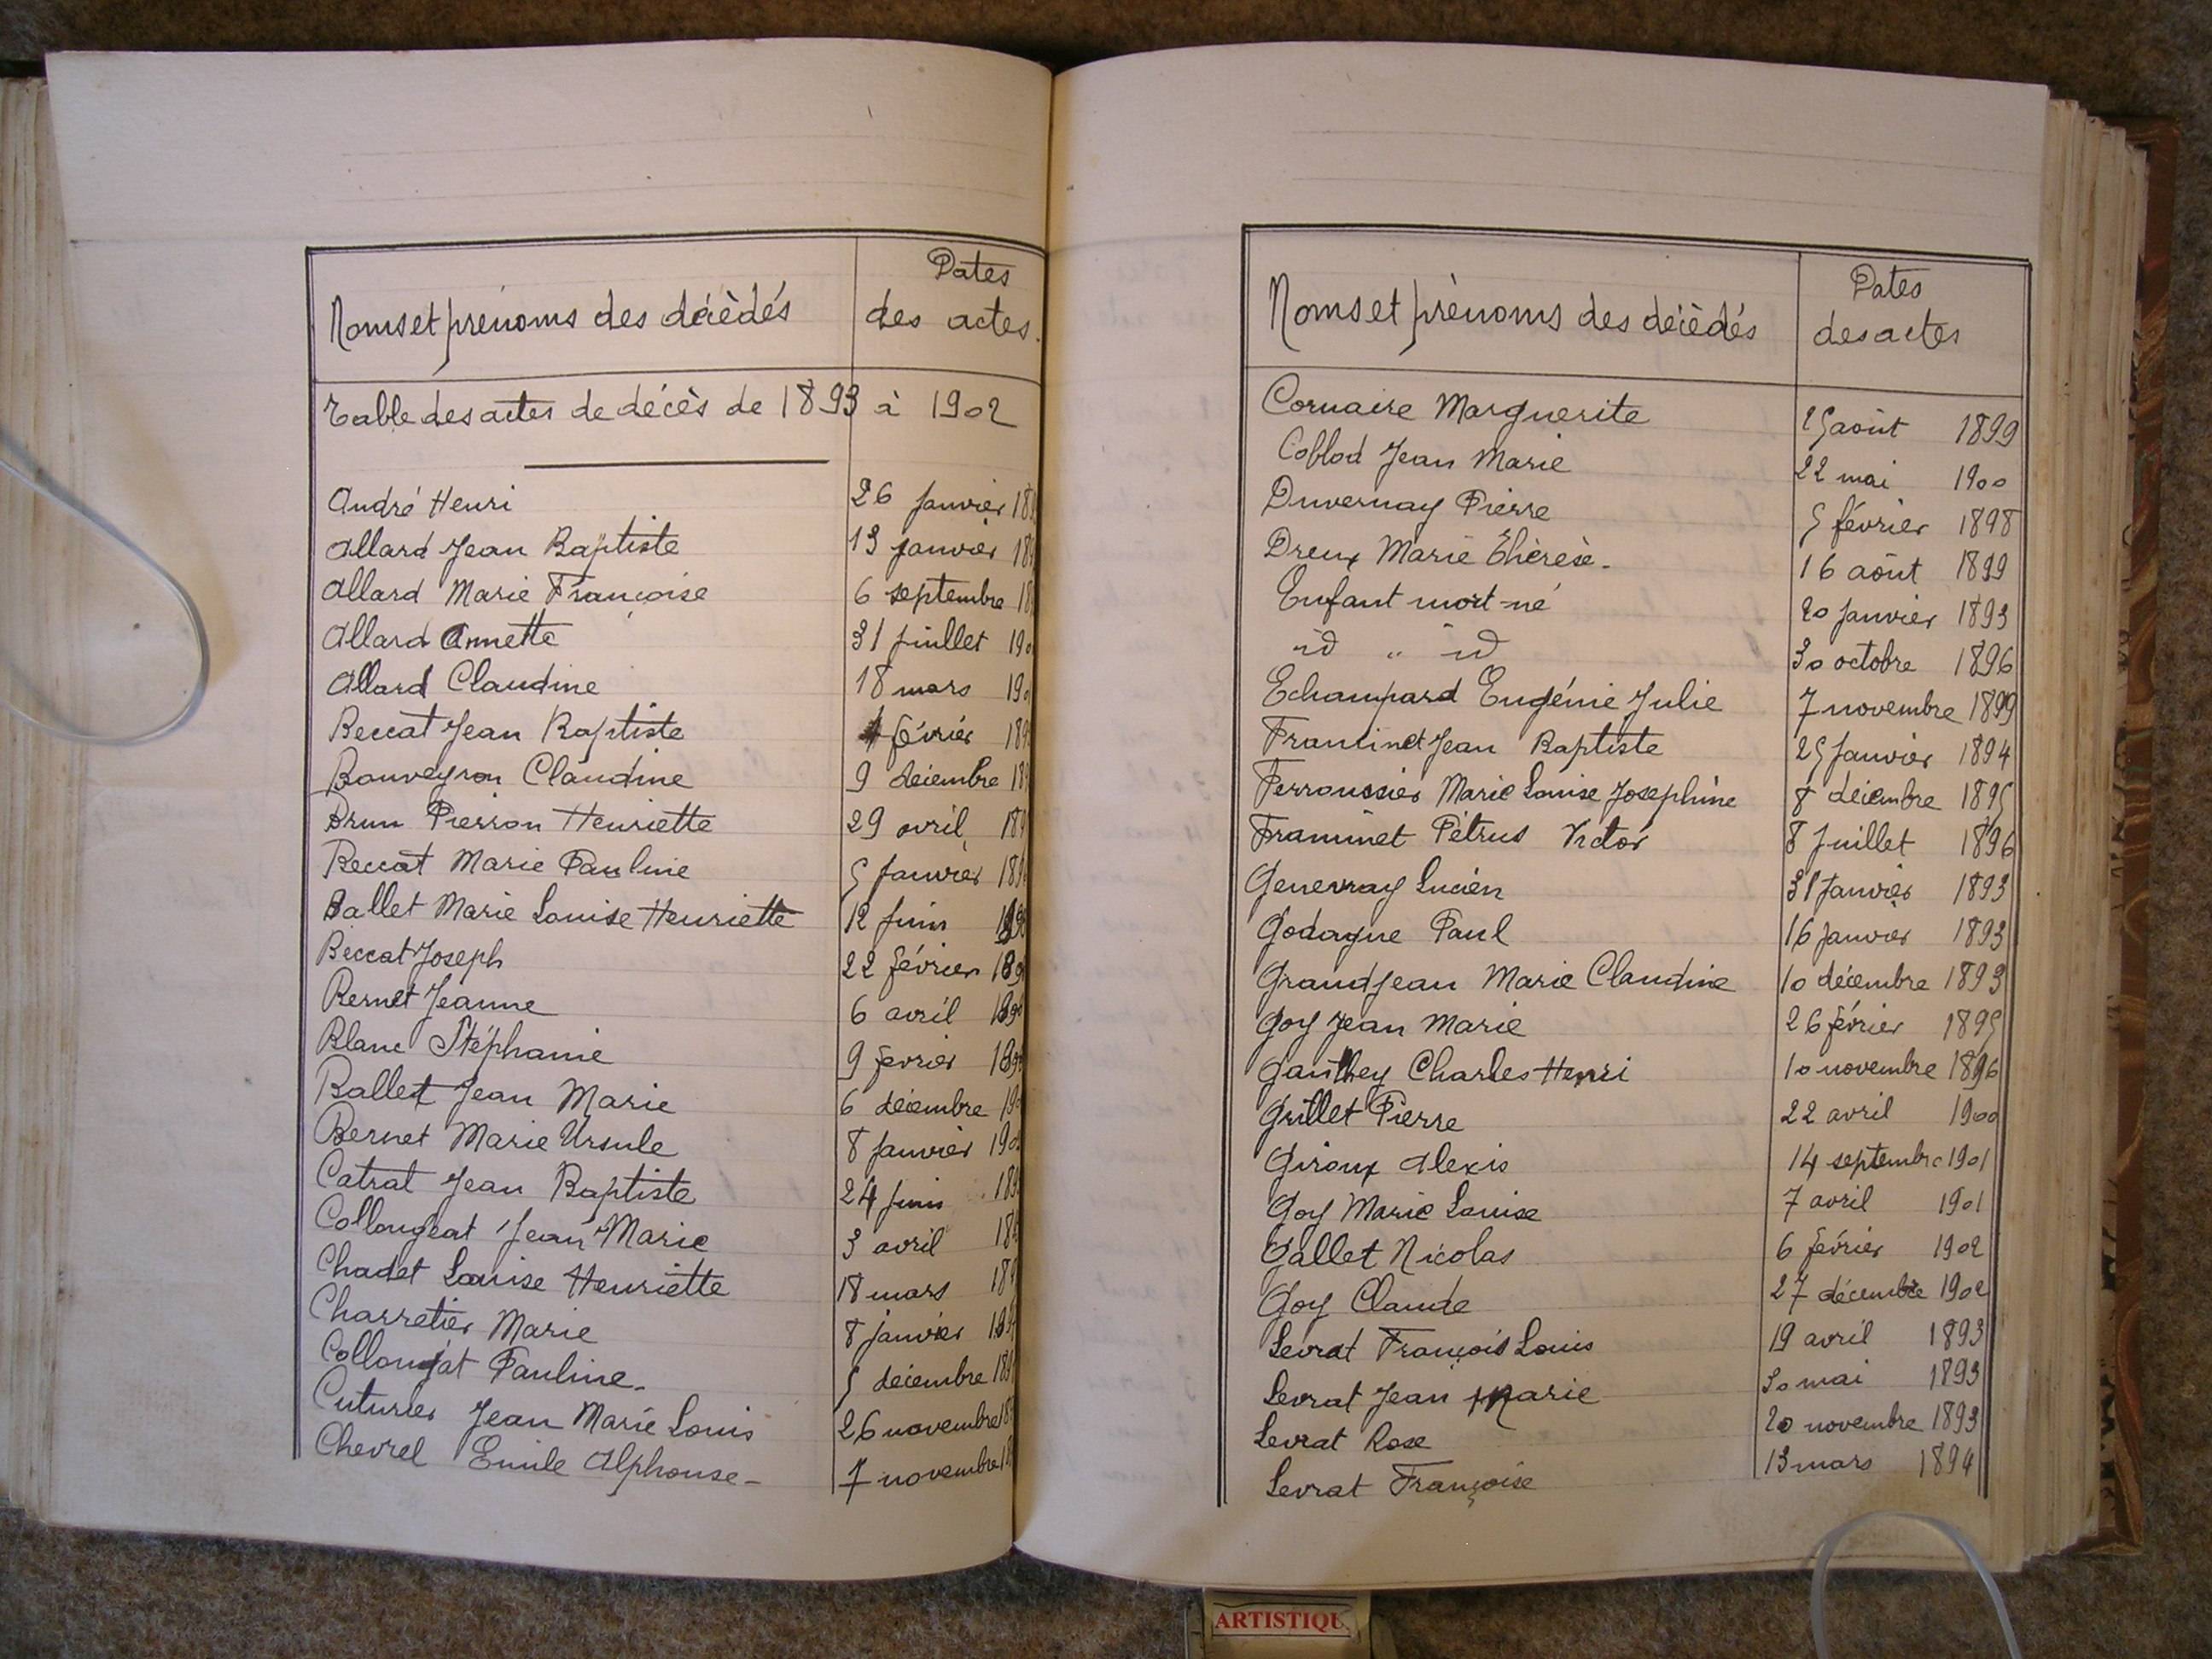 Noms et prénoms des décèdés
Dates
des actes.
Table des actes de décès de 1893 à 1902
André Henri 26 janvier
Allard Jean Baptiste 13 janvier
Allard Marie Françoise 6 septembre
Allard Annette 31 juillet
Allard Claudine 18 mars
Beccat Jean Baptiste février
Bouveyron Claudine 9 décembre
Brun Pierron Henriette 29 avril
Beccat Marie Pauline 5 janvier
Ballet Marie Louise Henriette 12 juin
Beccat Joseph 22 février
Bernet Jeanne 6 avril
Blanc Stéphanie 9 fevrier
Ballet Jean Marie 6 décembre
Bernet Marie Ursule 8 janvier
Catrat Jean Baptiste 24 juin
Collongeat Jean Marie 3 avril
Chadet Louise Henriette 18 mars
Charretier Marie 8 janvier
Collongat Pauline 5 décembre
Cuturier Jean Marie Louis 26 novembre
Chevrel Emile Alphonse novembre
Noms et prénoms des décèdés
Dates
des actes
Cornaire Marguerite 25 août 1899
Coblod Jean Marie 22 mai 1900
Duvernay Pierre 5 février 1898
Dreux Marie Thérèse 16 août 1899
Enfant mort-né 20 janvier 1893
id " id 30 octobre 1896
Echampard Eugénie Julie 7 novembre 1899
Francinet Jean Baptiste 25 janvier 1894
Ferroussier Marie Louise Josephine 8 décembre 1895
Francinet Pétrus Victor 8 juillet 1896
Genevray Lucien 31 janvier 1893
Godagne Paul 16 janvier 1893
Grandjean Marie Claudine 10 décembre 1893
Goy Jean Marie 26 février 1895
Gauthey Charles Henri 10 novembre 1896
Grillet Pierre 22 avril 1900
Giroux Alexis 14 septembre 1901
Goy Marie Louise 7 avril 1901
Gallet Nicolas 6 février 1902
Goy Claude 27 décembre 1902
Levrat François Louis 19 avril 1893
Levrat Jean Marie 30 mai 1893
Levrat Rose 20 novembre 1893
Levrat Françoise 13 mars 1894
ARTISTIQU